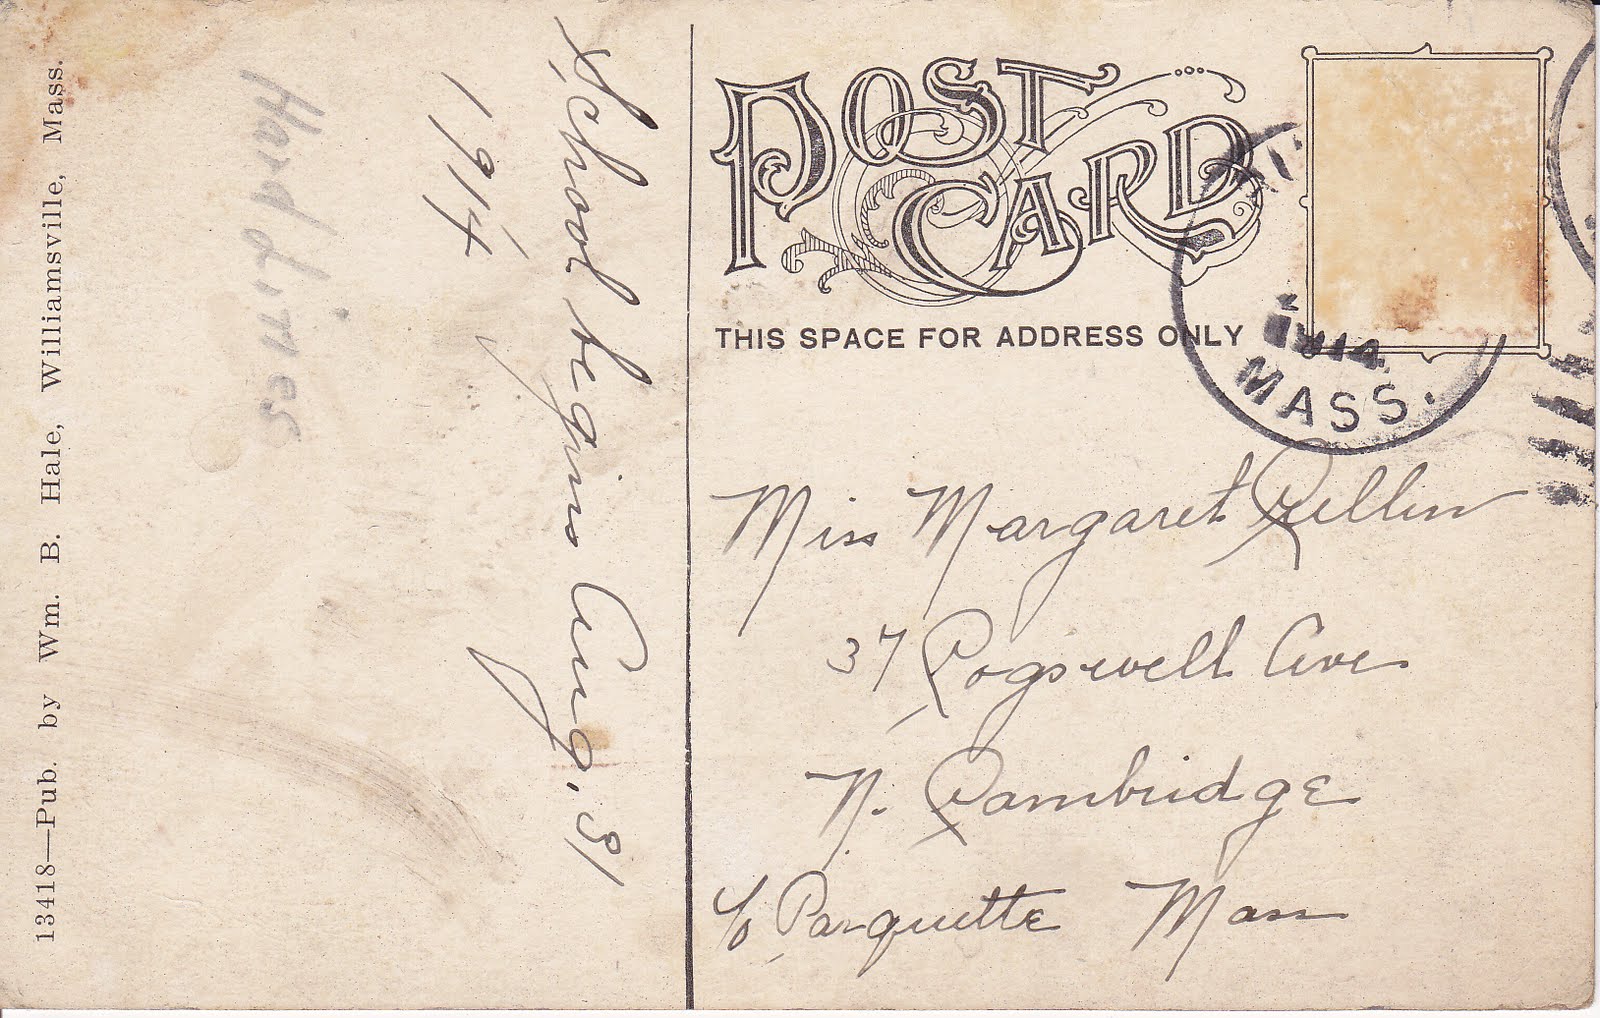 13418—Pub. by Wm. B. Hale, Williamsville, Mass.
Hard Lines
School begins Aug, 31
1914
POST
CARD
THIS SPACE FOR ADDRESS ONLY
14
MASS.
Miss Margaret
37 Cogswell Ave
N. Cambridge
c/o Parquette Mass